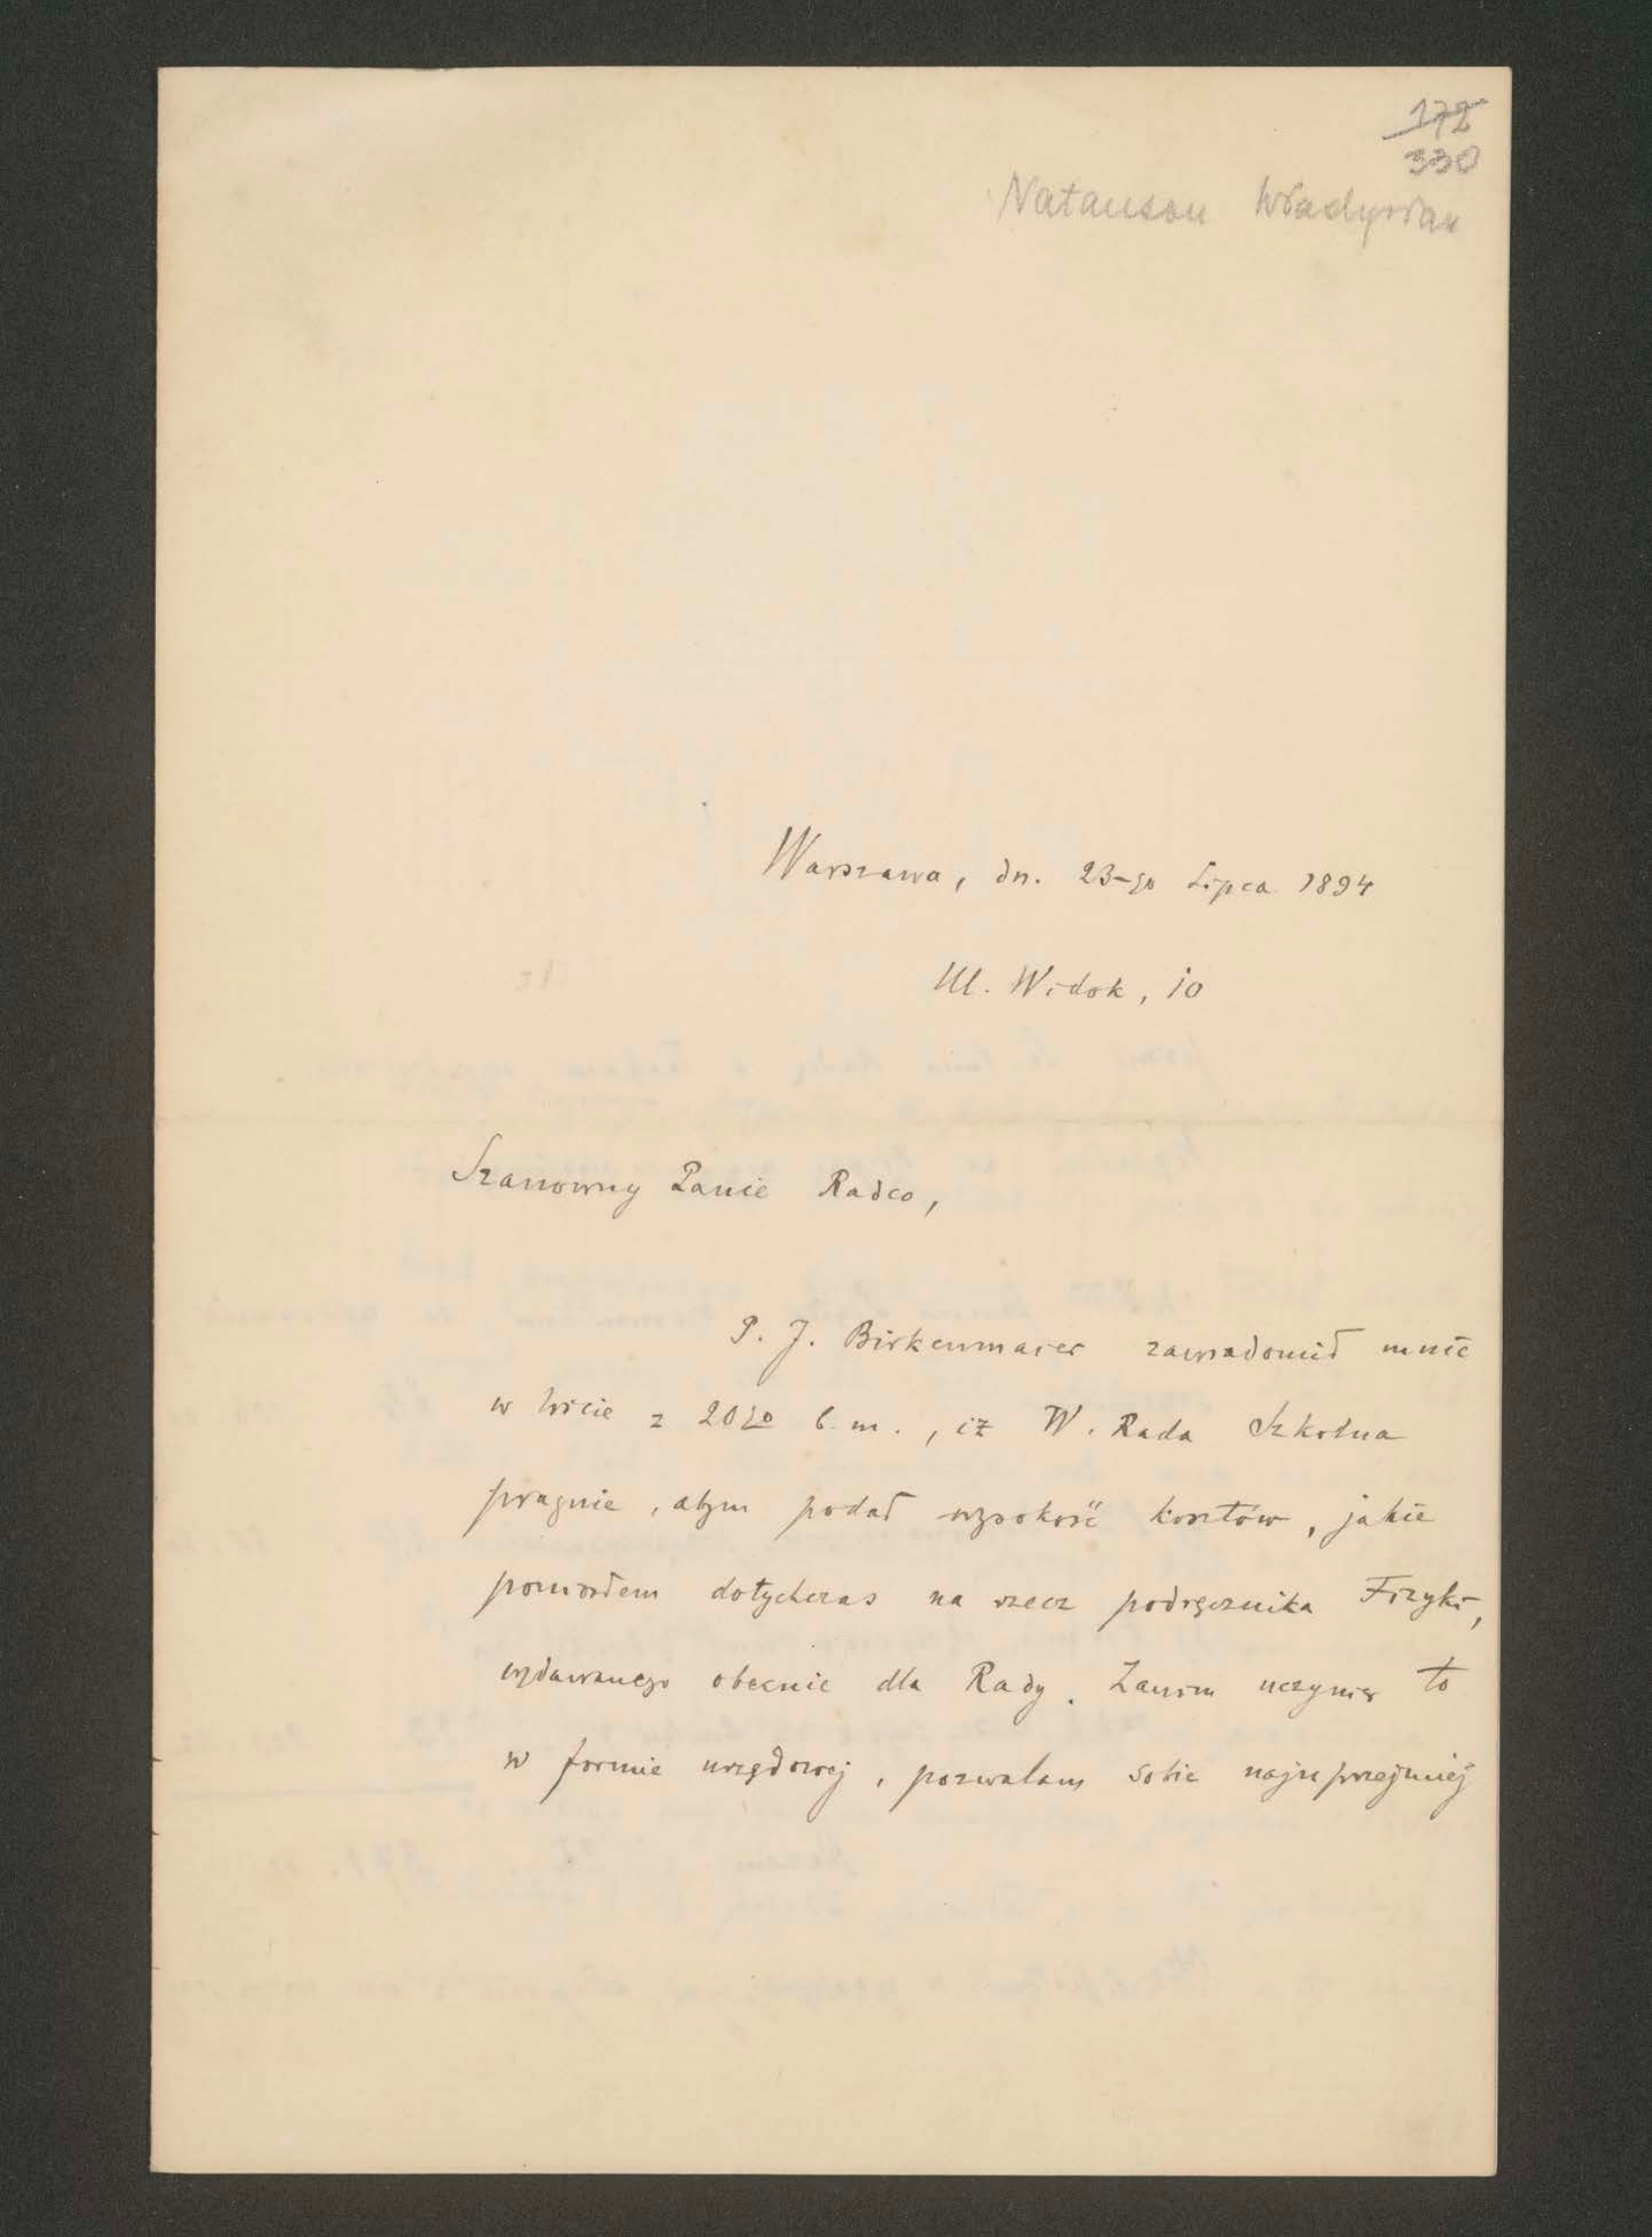 172
330
Natanson Władysław
Warszawa, dn. 23-go Lipca 1894
Ul. Widok, 10
Szanowny Panie Radco,
P. J. Birkenmajer zawiadomił mnie
w liście z 20go b. m., iż W. Rada Szkolna
pragnie, abym podał wysokość kosztów, jakie
poniosłem dotychczas na rzecz podręcznika Fizyki,
wydawanego obecnie dla Rady. Zanim uczynię to
w formie urzędowej, pozwalam sobie najuprzejmiej